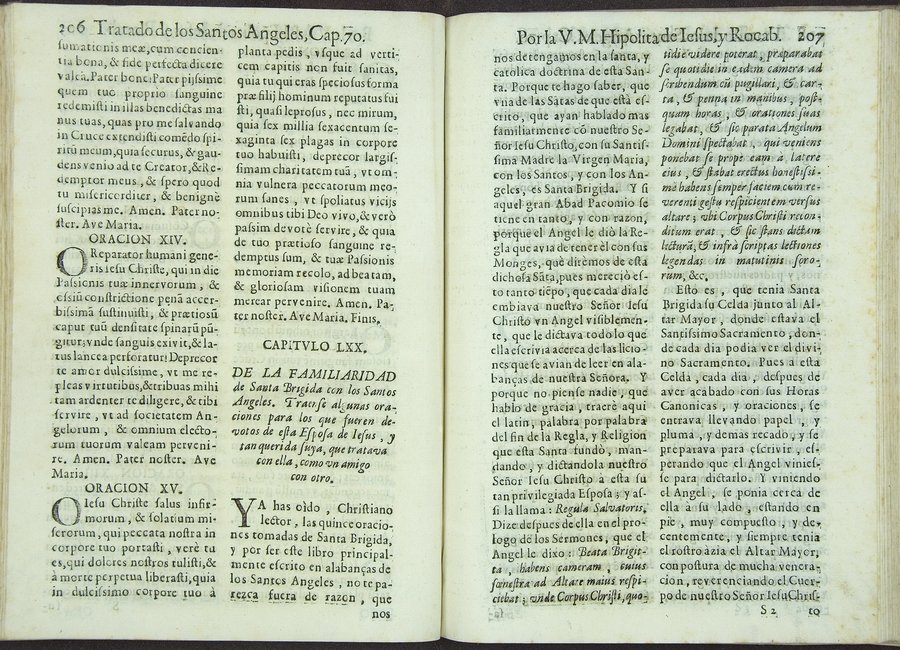 206 Tratado de los Santos Angeles, Cap. 70.
sumationis meæ, cum concien-
tia bona, & fide perfecta dicere
valeã. Pater bone: Pater pijssime
quem tuo proprio sanguine
redemisti in illas benedictas ma
nus tuas, quas pro me salvando
in Cruce extendisti comẽdo spi-
ritũ meum, quia securus, & gau-
dens venio ad te Creator, & Re-
demptor meus, & spero quod
tu misericorditer, & benignè
suscipias me. Amen. Pater no-
ster. Ave Maria.
ORACION XIV.
O Reparator humani gene-
ris Iesu Christe, qui in die
Passionis tuæ innervorum, &
essiũ constrictione pẽna acer-
bissimã sustinuisti, & prætiosũ
caput tuũ densitate spinarũ pũ-
gitur, vnde sanguis exivit, & la-
tus lancea perforatur: Deprecor
te amor dulcissime, vt me re-
pleas virtutibus, & tribuas mihi
tam ardenter te diligere, & tibi
servire, vt ad societatem An-
gelorum, & omnium electo-
rum tuorum valeam perveni-
re. Amen. Pater noster. Ave
Maria.
ORACION XV.
O Iesu Christe salus infir-
morum, & solatium mi-
serorum, qui peccata nostra in
corpore tuo portasti, verè tu
es, qui dolores nostros tulisti, &
à morte perpetua liberasti, quia
in dulcissimo corpore tuo à
planta pedis, vsque ad verti-
cem capitis non fuit sanitas,
quia tu qui eras speciosus forma
præ filij hominum reputatus fui
sti, quasi leprosus, nec mirum,
quia sex millia sexacentum se-
xaginta sex plagas in corpore
tuo habuisti, deprecor largis-
simam charitatem tuã, vt om-
nia vulnera peccatorum meo-
rum sanes, vt spoliatus vicijs
omnibus tibi Deo vivo, & verò
passim devotè servire, & quia
de tuo prætioso sanguine re-
demptus sum, & tuæ Passionis
memoriam recolo, ad beatam,
& gloriosam visionem tuam
mercar pervenire. Amen. Pa-
ter noster. Ave Maria. Finis.
CAPITVLO LXX.
DE LA FAMILIARIDAD
de Santa Brigida con los Santos
Angeles. Traense algunas ora-
ciones para los que fueren de-
votos de esta Esposa de Iesus, y
tan querida suya, que tratava
con ella, como vn amigo
con otro.
YA has oìdo, Christiano
lector, las quince oracio-
nes tomadas de Santa Brigida,
y por ser este libro principal-
mente escrito en alabanças de
los Santos Angeles, no te pa-
rezca fuera de razon, que
nos
Por la V. M. Hipolita de Iesus, y Rocab. 207
nos detengamos en la santa, y
catolica doctrina de esta San-
ta. Porque te hago saber, que
vna de las Sãtas de que està es-
crito, que ayan hablado mas
familiarmente cõ nuestro Se-
ñor Iesu Christo, con su Santis-
sima Madre la Virgen Maria,
con los Santos, y con los An-
geles, es Santa Brigida. Y si
aquel gran Abad Pacomio se
tiene en tanto, y con razon,
porque el Angel le diò la Re-
gla que avia de tener èl con sus
Monges, què dirèmos de esta
dichosa Sãta, pues mereciò es-
to tanto tiẽpo, que cada dia le
embiava nuestro Señor Iesu
Christo vn Angel visiblemen-
te, que le dictava todo lo que
ella escrivia acerca de las licio-
nes que se avian de leer en ala-
banças de nuestra Señora. Y
porque no piense nadie, que
hablo de gracia, traerè aqui
el latin, palabra por palabra
del fin de la Regla, y Religion
que esta Santa fundò, man-
dando, y dictandola nuestro
Señor Iesu Christo à esta su
tan privilegiada Esposa; y as-
si la llama: Regula Salvatoris.
Dize despues de ella en el pro-
logo de los Sermones, que el
Angel le dixo: Beata Brigit-
ta, habens cameram, cuius
fœnestra ad Altare maius respi-
ciebat; vnde Corpus Christi, quo-
tidiè videre poterat, præparabat
se quotidie in eadem camera ad
scribendum cũ pugillari, & car-
ta, & penna in manibus, post-
quam horas, & orationes suas
legabat, & sic parata Angelum
Domini spectabat, qui veniens
ponebat se propè eam à latere
eius, & stabat erectus honestissi-
mè habens semper faciem cum re-
veremi gestu respicientem versus
altare; vbi Corpus Christi recon-
ditum erat, & sic stans dictam
lecturã, & infrà scriptas lectiones
legendas in matutinis soro-
rum, &c.
Esto es, que tenia Santa
Brigida su Celda junto al Al-
tar Mayor, donde estava el
Santissimo Sacramento, don-
de cada dia podia ver el divi-
no Sacramento. Pues a esta
Celda, cada dia, despues de
aver acabado con sus Horas
Canonicas, y oraciones, se
entrava llevando papel, y
pluma, y demas recado, y se
preparava para escrivir, es-
perando que el Angel vinies-
se para dictarlo. Y viniendo
el Angel, se ponia cerca de
ella à su lado, estando en
pie, muy compuesto, y de-
centemente, y siempre tenia
el rostro àzia el Altar Mayor,
con postura de mucha venera-
cion, reverenciando el Cuer-
po de nuestro Señor Iesu Chris-
S 2 to